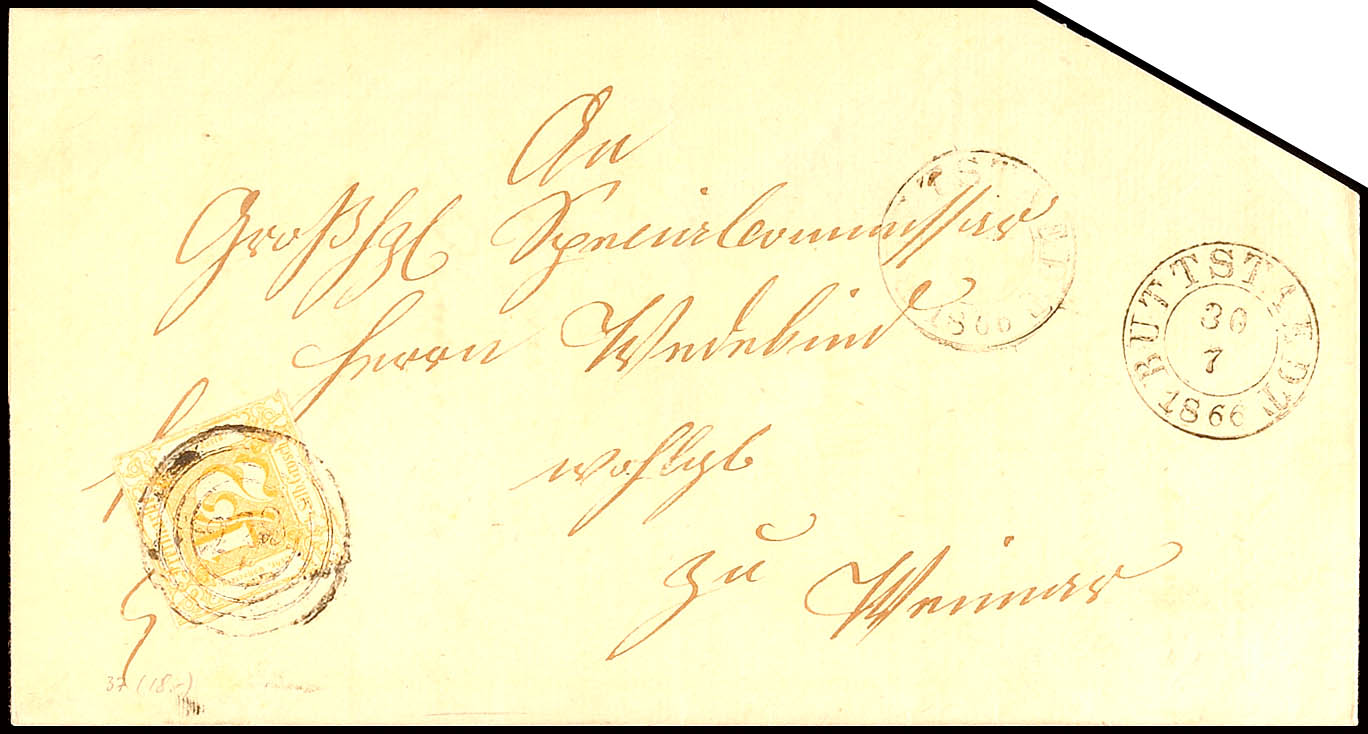 An
Großhzl Specialcommissar
Herrn Wedekind
wohlgb
zu Weimar
BUTTSTAEDT
30
7
1866
1866
1/2
37 (18.-)